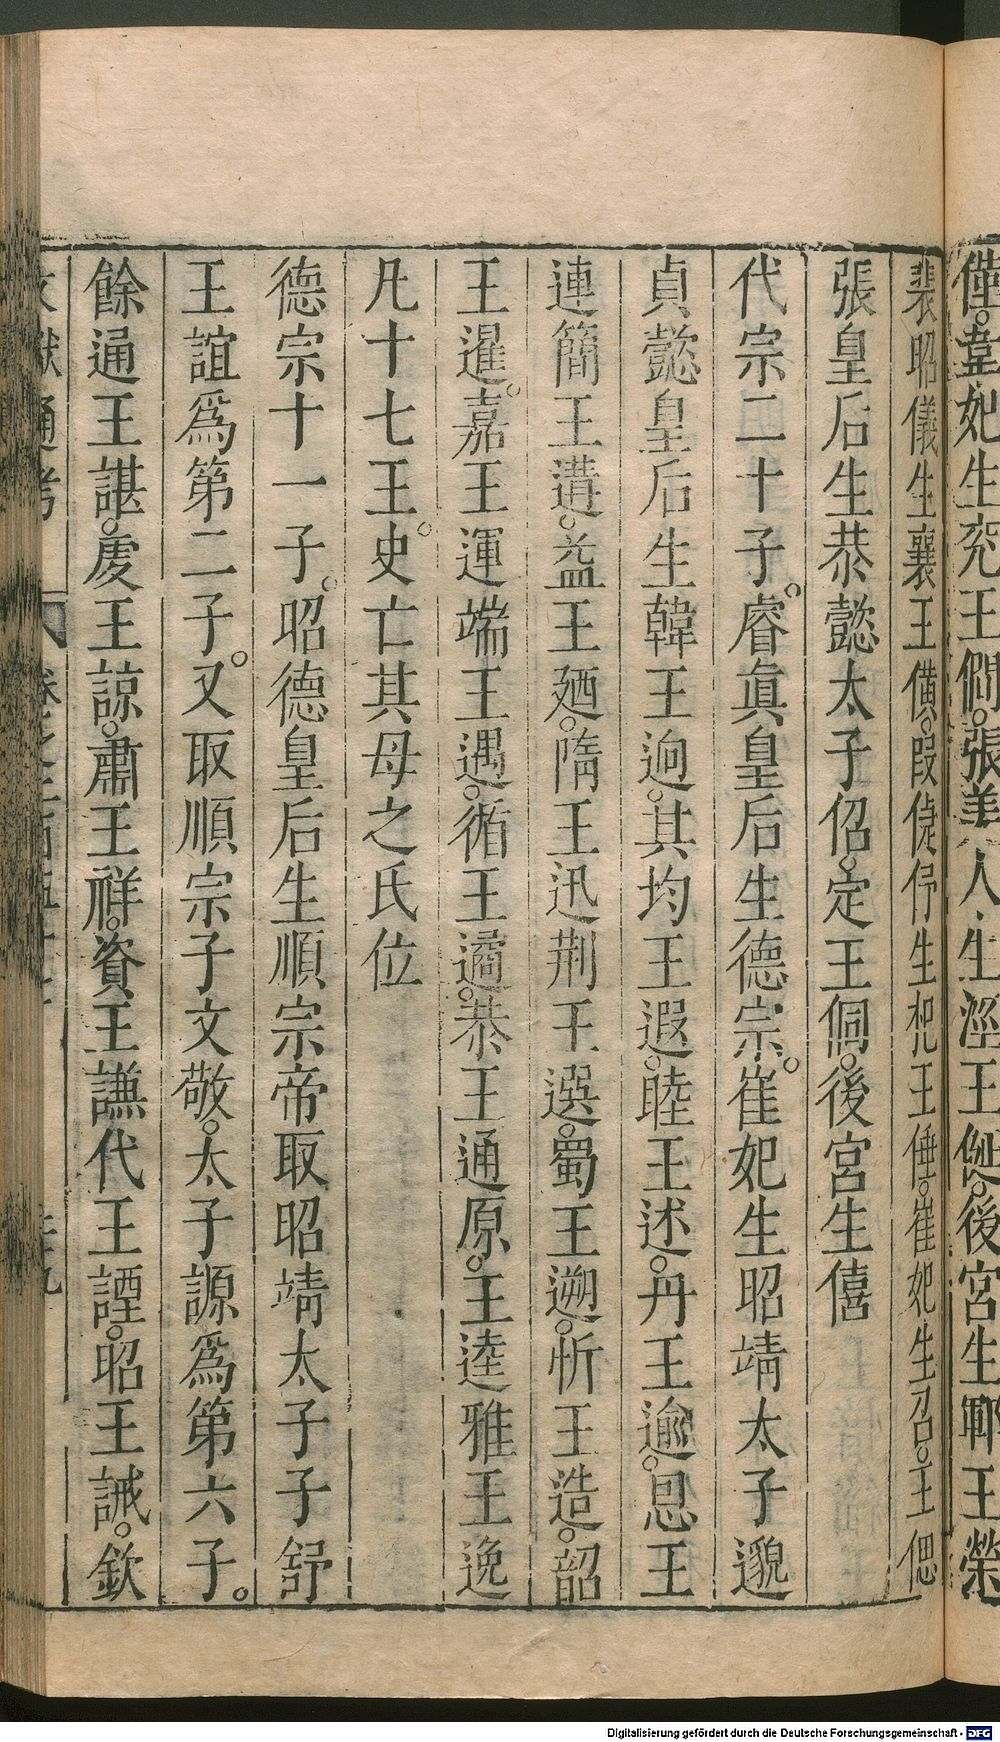 僅。韋妃生兖王僩。張美人生涇王侹。後宮生鄆王榮
裴昭儀生襄王僙。段倢伃生杞王倕。崔妃生召。王偲
張皇后生恭懿太子佋。定王侗。後宮生僖
代宗二十子。睿眞皇后生德宗。崔妃生昭靖太子邈
貞懿皇后生韓王迥。其均王遐。睦王述。丹王逾。恩王
連簡王遘。益王廼。隋王迅荆王選。蜀王遡。忻王造。韶
王暹。嘉王運端王遇。循王遹。恭王通原。王逵雅王逸
凡十七王。史亡其母之氏位
德宗十一子。昭德皇后生順宗帝取昭靖太子子舒
王誼爲第二子。又取順宗子文敬。太子謜爲第六子。
餘通王諶。虔王諒。肅王詳。資王謙代王諲。昭王誡。欽
文獻通考 卷之二百五十七
Digitalisierung gefördert durch die Deutsche Forschungsgemeinschaft - DFG